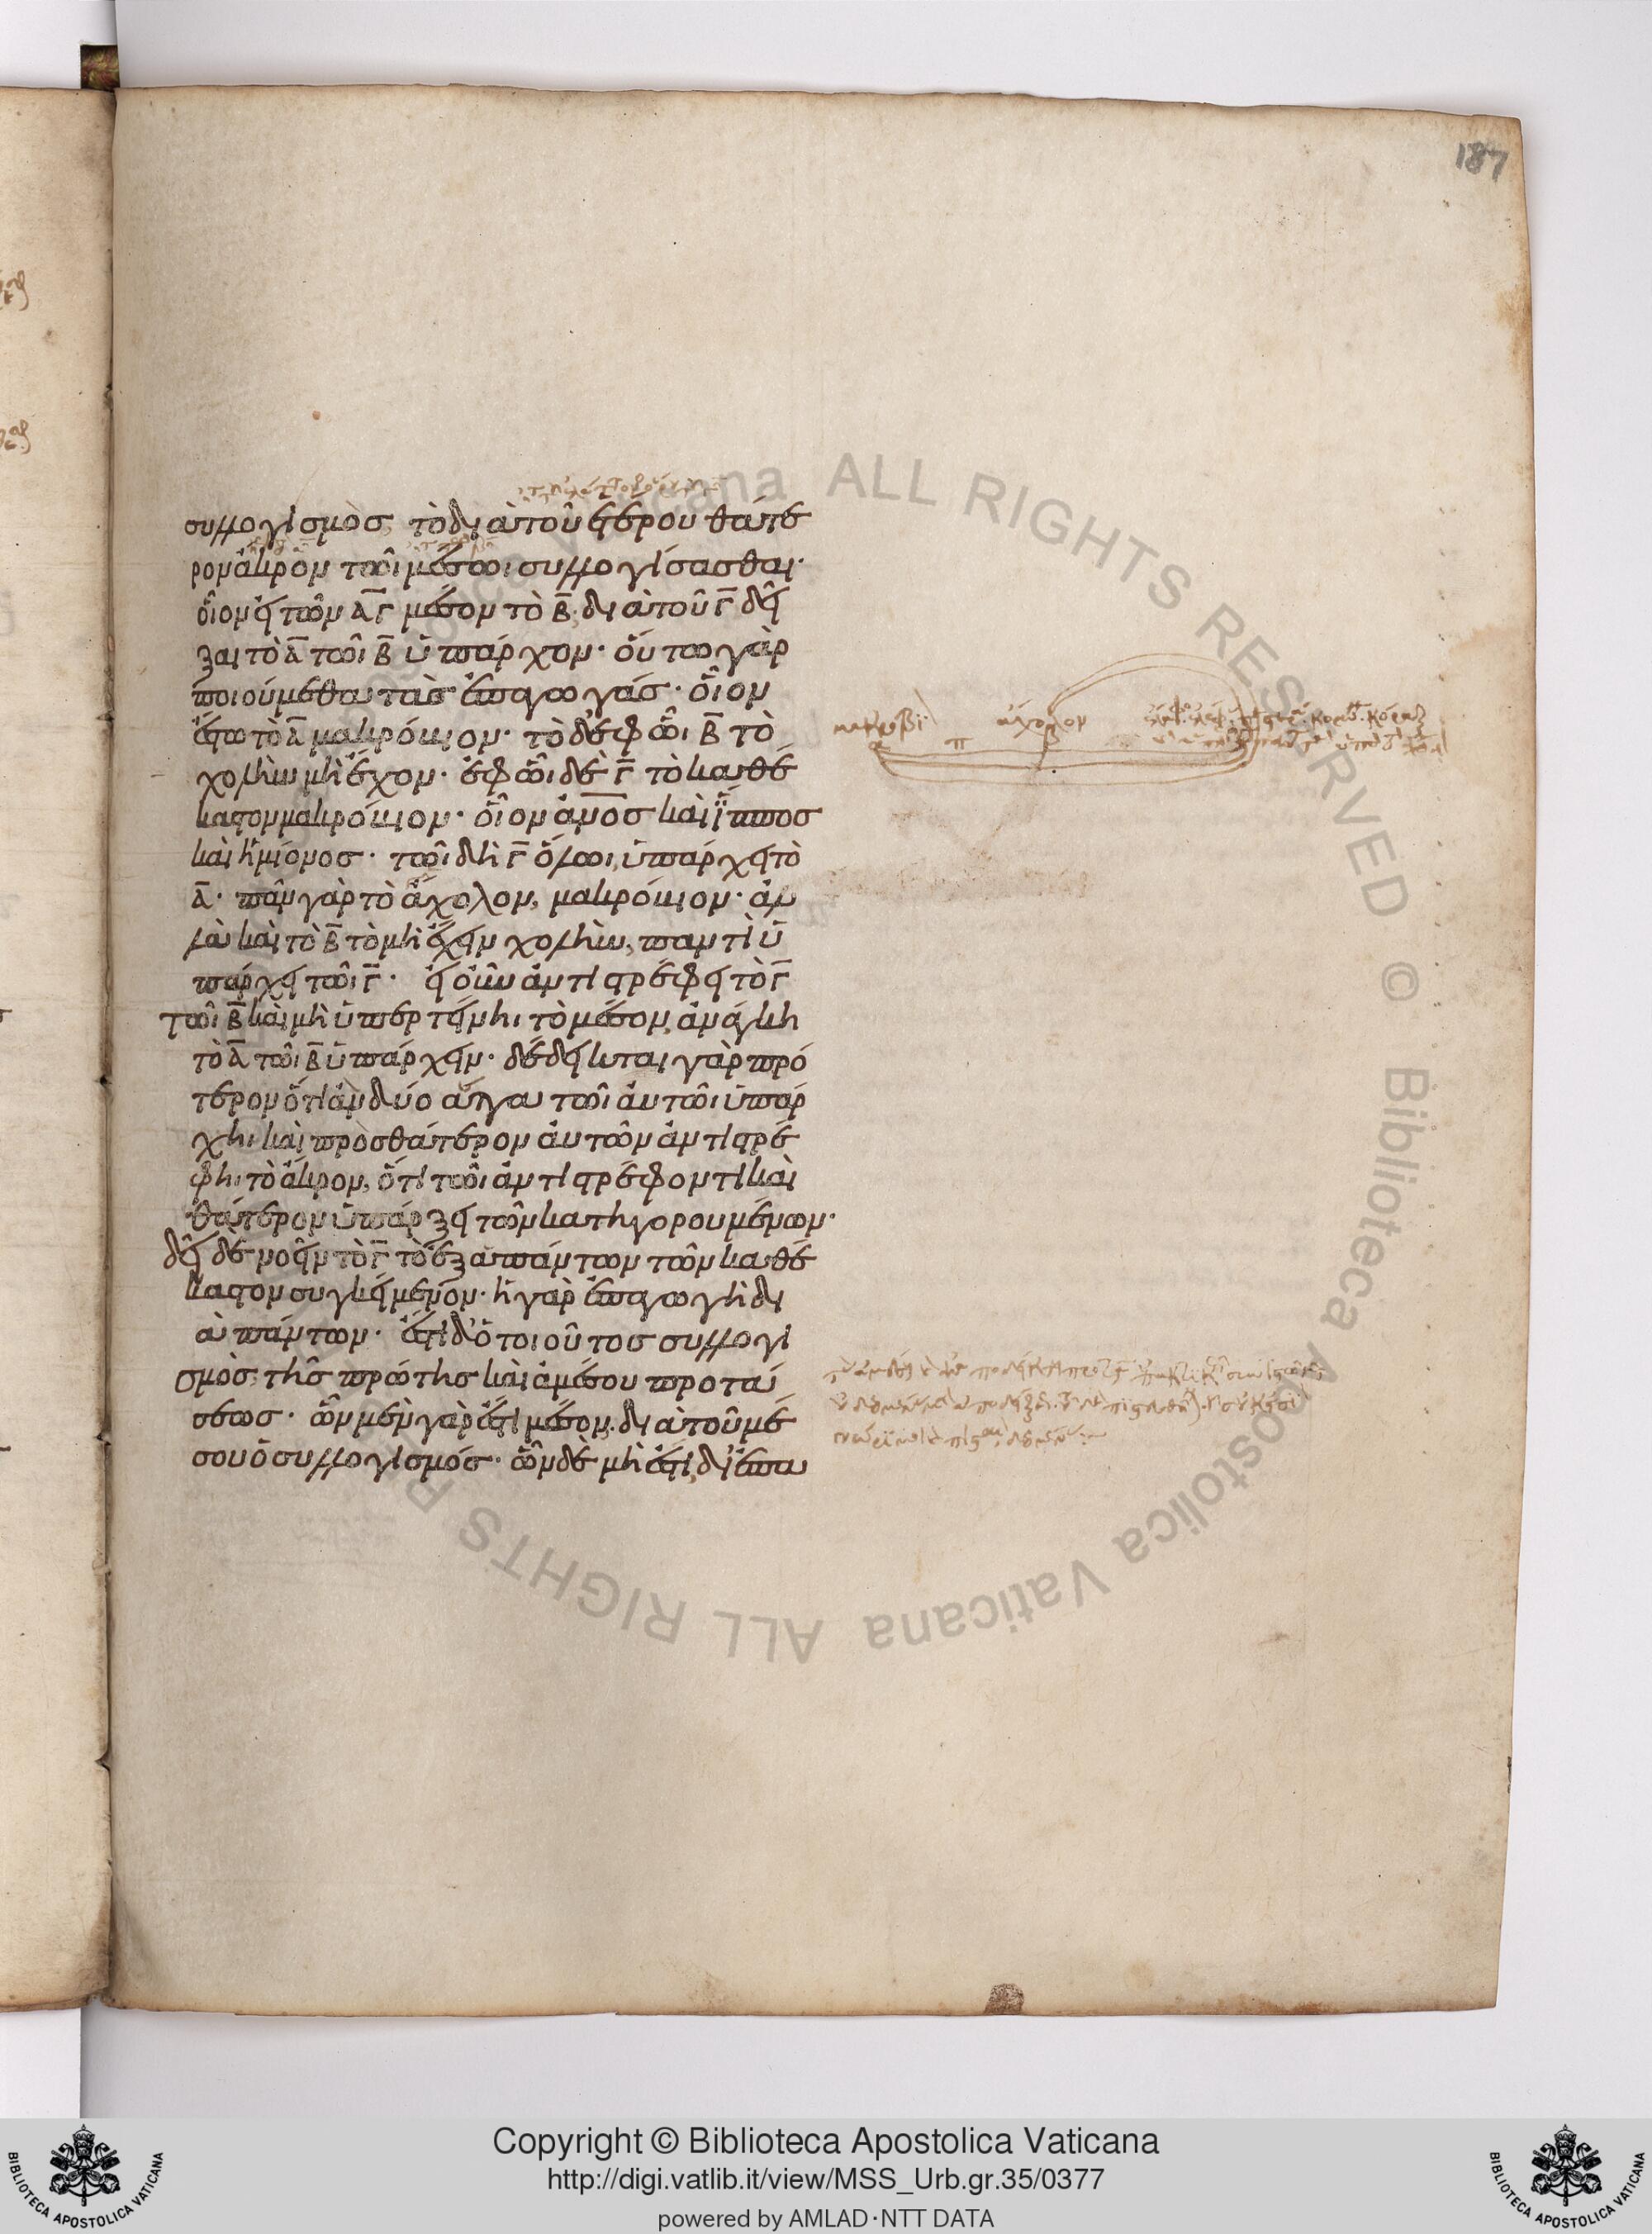 187
συλλογισμὸσ, τὸ διὰ τοῦ ἑτέρου θάτε
ρον ἄκρον τῶι μέσωι συλλογίσασθαι·
οἷον εἰ τῶν Α Γ μέσον τὸ Β, διὰ τοῦ Γ δεῖ
ξαι τὸ Α τῶι Β ὑπάρχον· οὕτω γὰρ
ποιούμεθα τὰσ ἐπαγωγάσ· οἷον
ἔστω τὸ Α μακρόβιον· τὸ δ' ἐφ ὧι Β τὸ
χολὴν μὴ ἔχον· ἐφ ὧι δὲ Γ τὸ καθέ
καστον μακρόβιον· οἷον ἄνοσ καὶ ἵπποσ
καὶ ἡμίονοσ· τῶι δὴ Γ ὅλωι, ὑπάρχει τὸ
Α· πᾶν γὰρ τὸ ἄχολον, μακρόβιον· ἀλ
λὰ καὶ τὸ Β τὸ μὴ ἔχειν χολὴν, παντὶ ὑ
πάρχει τῶι Γ· εἰ οὖν ἀντιστρέφει τὸ Γ
τῶι Β καὶ μὴ ὑπερτείνηι τὸ μέσον, ἀνάγκη
τὸ Α τῶι Β ὑπάρχειν· δέδεικται γὰρ πρό
τερον ὅτι ἂν δύο ἄττα τῶι ἀυτῶι ὑπάρ
χηι καὶ πρὸσ θάτερον ἀυτῶν ἀντιστρέ
φηι τὸ ἄκρον, ὅτι τῶι ἀντιστρέφοντι καὶ
θάτερον ὑπάρξει τῶν κατηγορουμένων·
δεῖ δὲ νοεῖν τὸ Γ τὸ ἐξ ἁπάντων τῶν καθέ
καστον συγκείμενον· ἡ γὰρ ἐπαγωγὴ δι
ὰ πάντων· ἔστι δ' ὁ τοιοῦτοσ συλλογι
σμὸσ, τῆσ πρώτησ καὶ ἀμέσου προτά
σεωσ· ὧν μὲν γὰρ ἔστι μέσον, διὰ τοῦ μέ
σου ὁ συλλογισμόσ· ὧν δὲ μὴ ἔστι, δι ἐπα
μακρόβι
ἄχολον
α
π
β
Copyright © Biblioteca Apostolica Vaticana
http://digi.vatlib.it/view/MSS_Urb.gr.35/0377
powered by AMLAD·NTT DATA
BIBLIOTECA APOSTOLICA VATICANA
BIBLIOTECA APOSTOLICA VATICANA
ALL RIGHTS RESERVED © Biblioteca Apostolica Vaticana